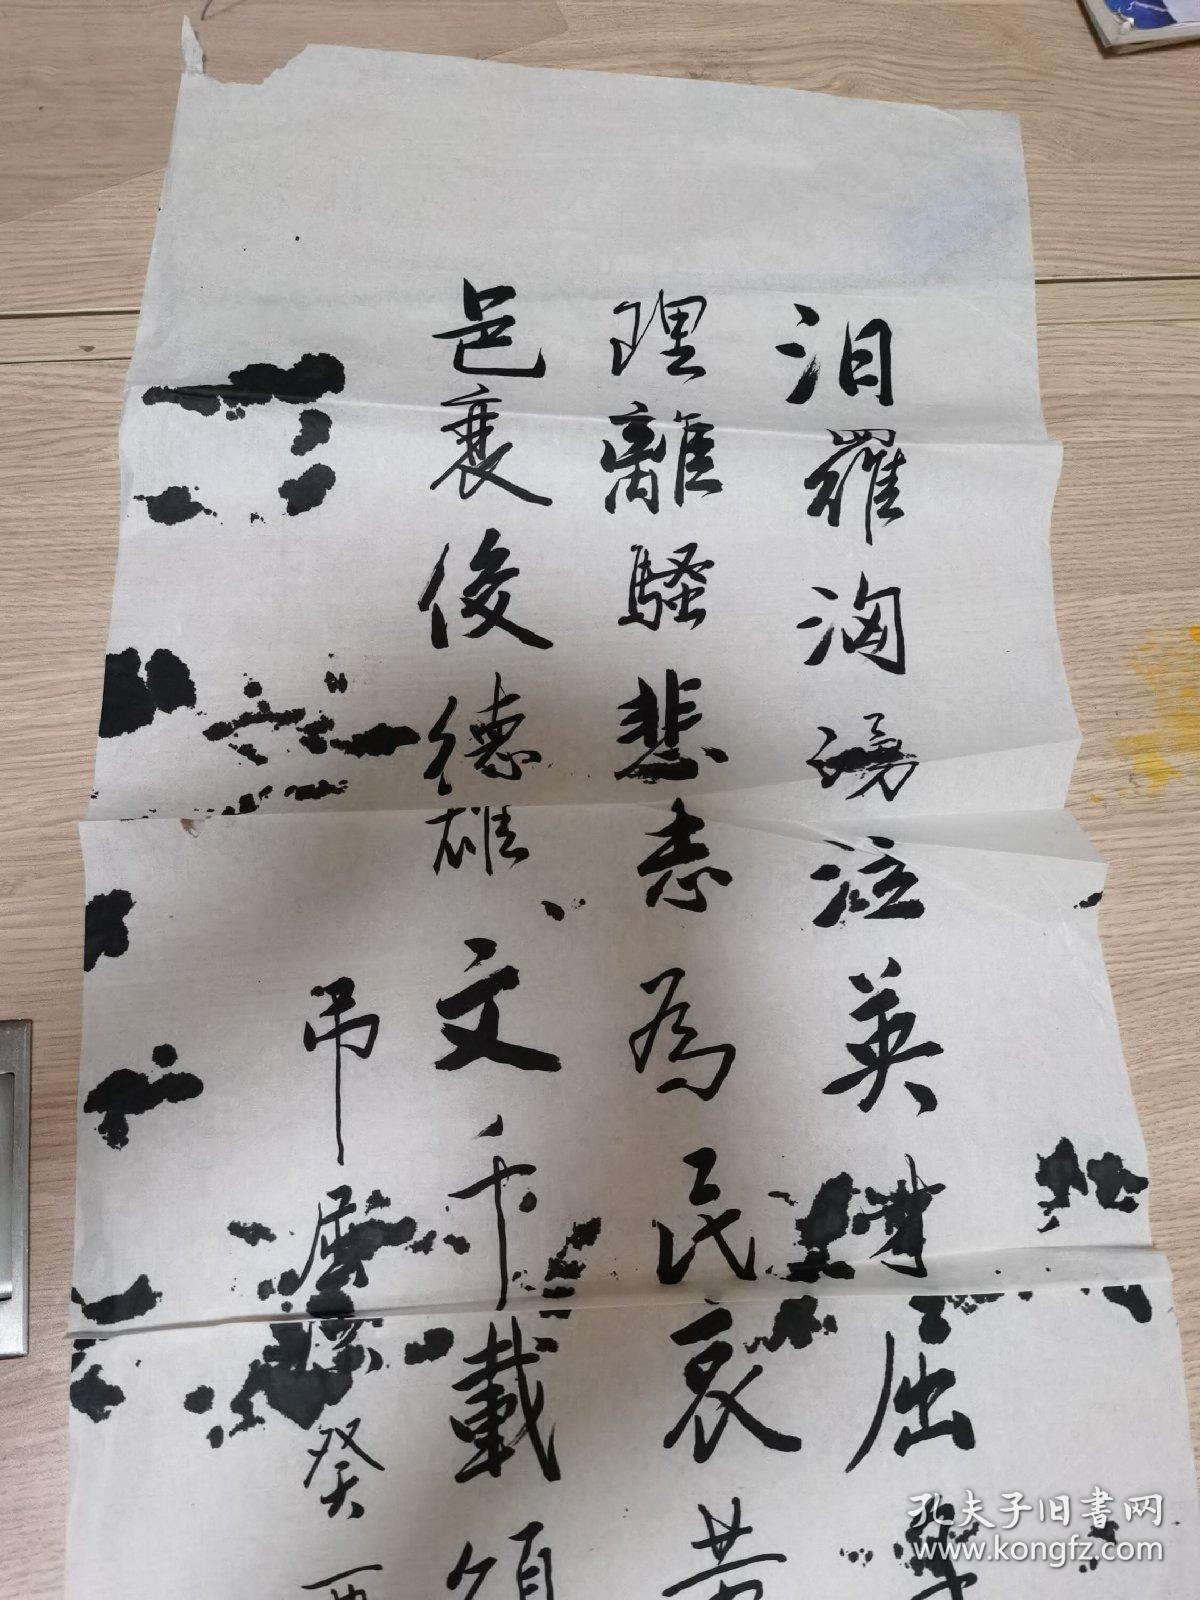 汨羅洶湧泣英屈
理離騷悲志為民哀黄
邑俊德雄文千載頌
吊屈原癸酉
孔夫子旧书网
www.kongfz.com